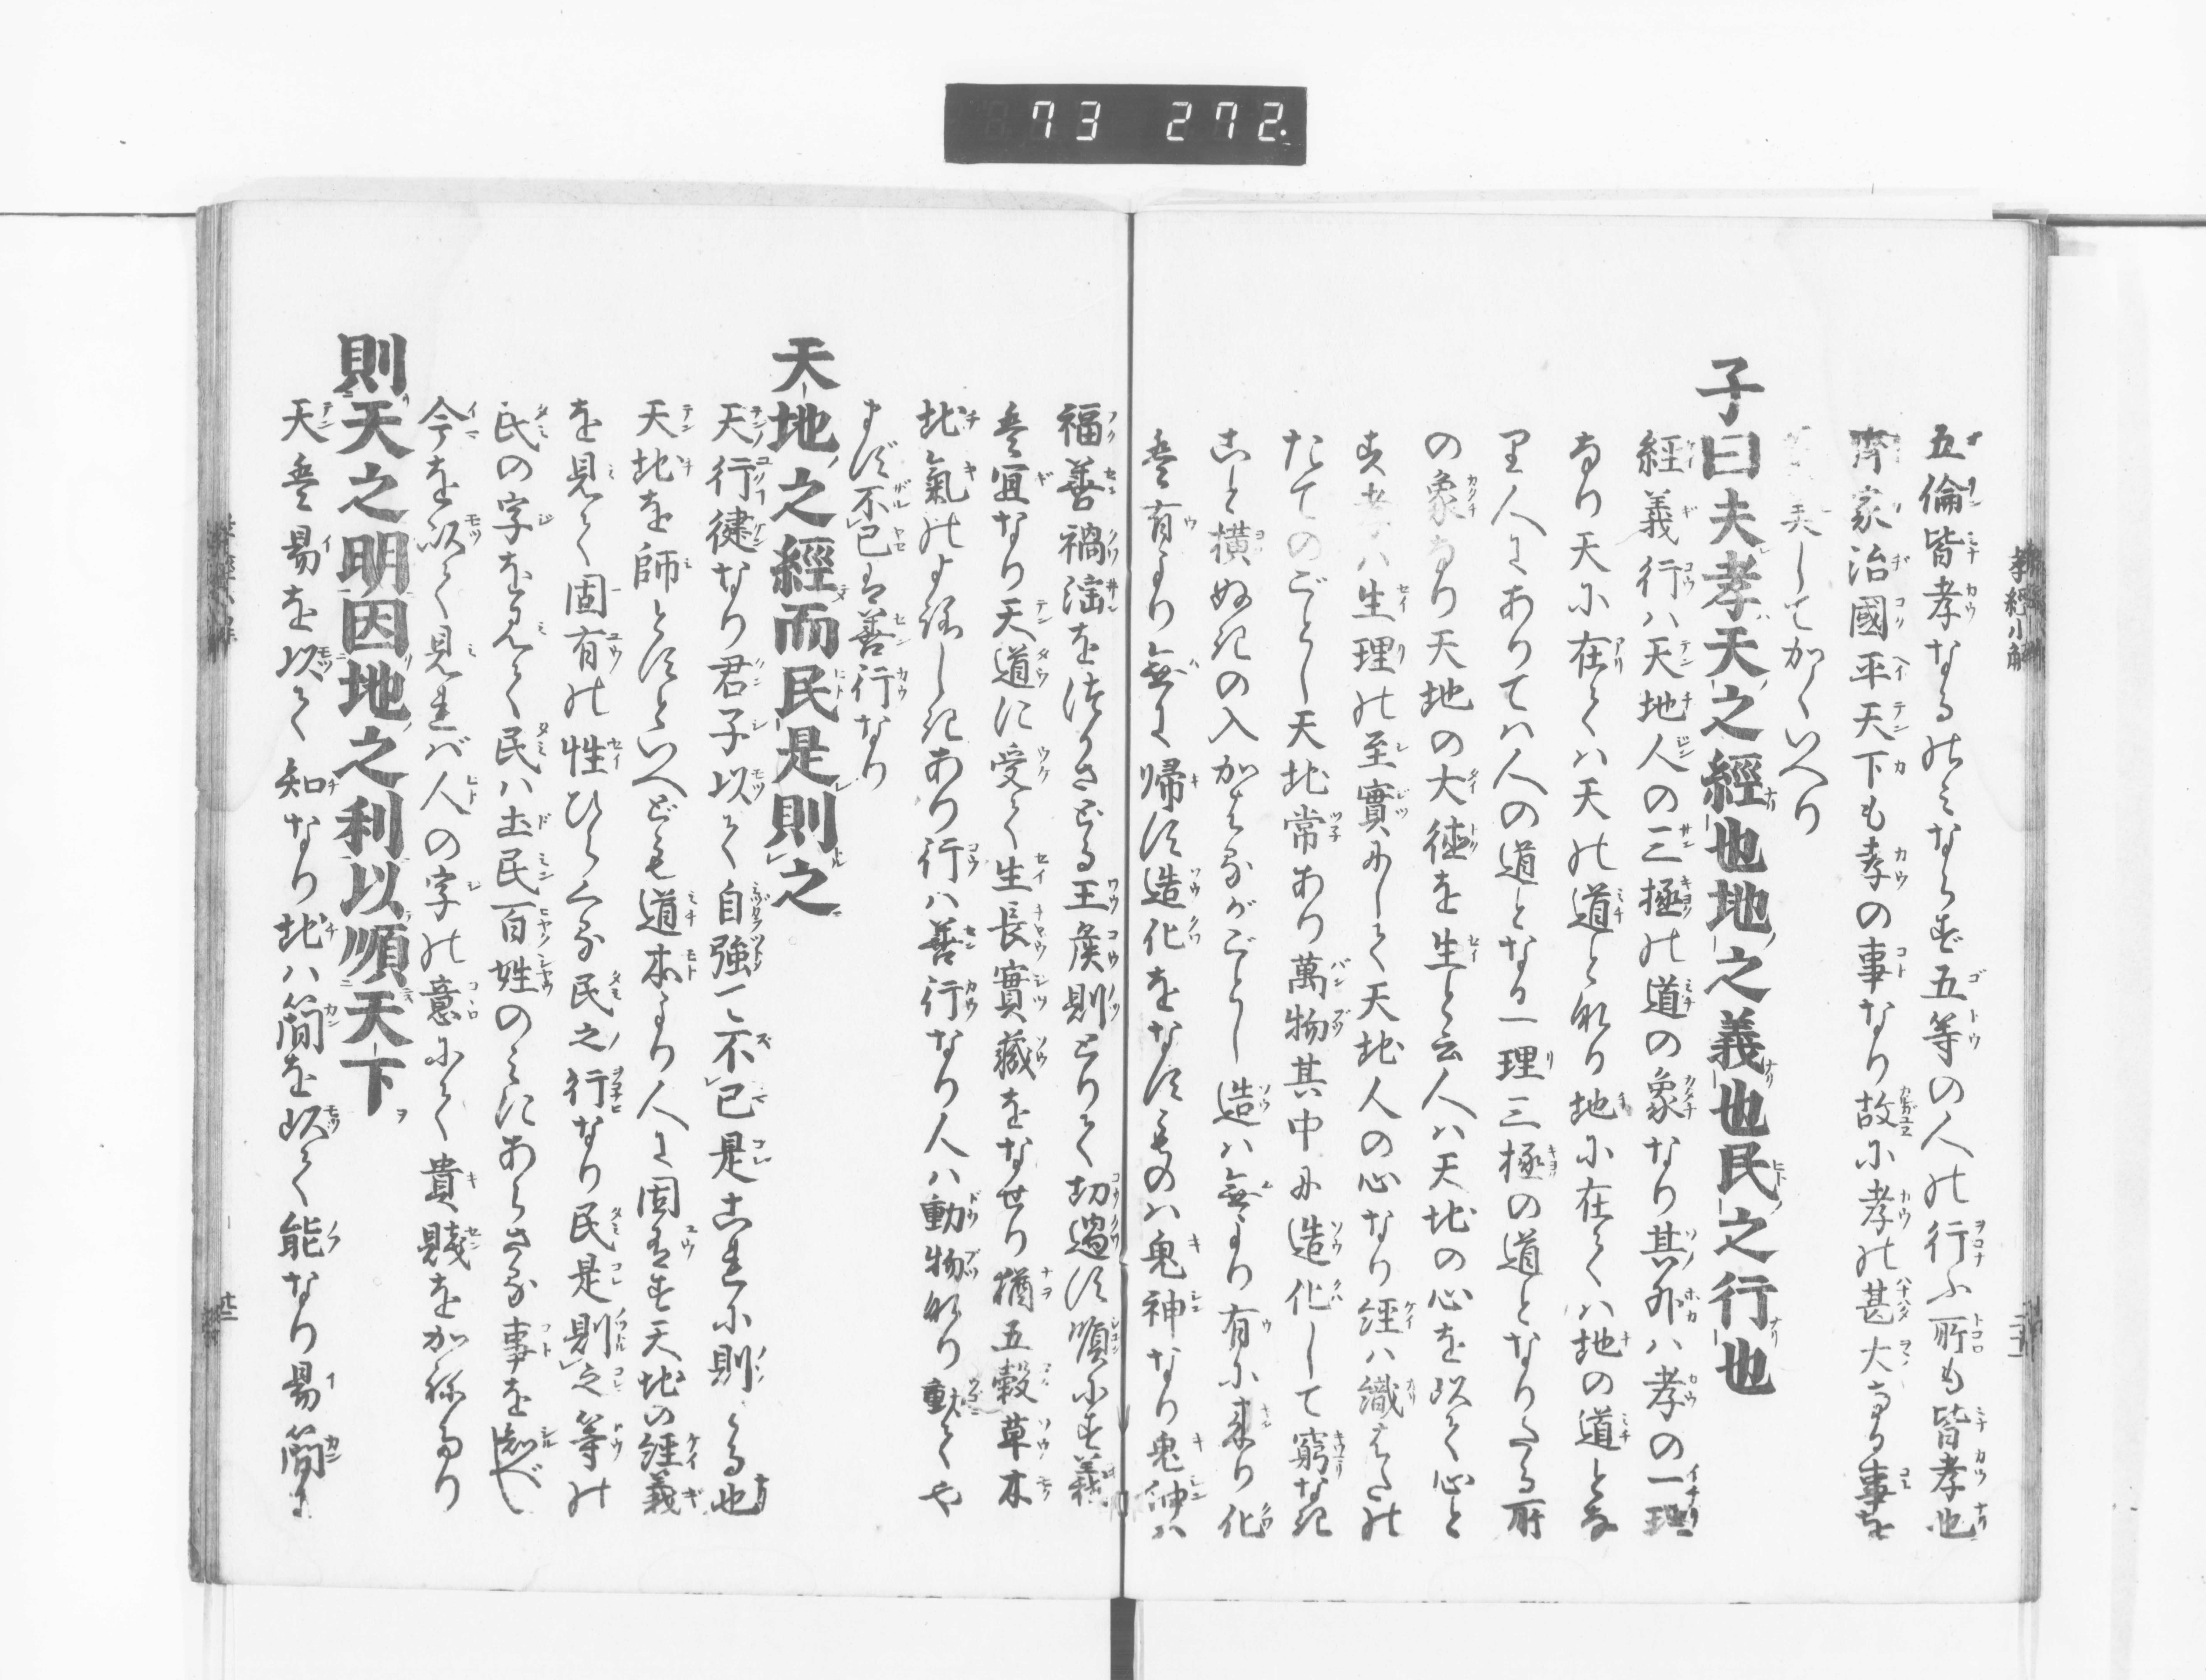 73 272.
孝經小解
五倫皆孝なるのミならず五等の人の行ふ所も皆孝也
齊家治國平天下も孝の事なり故に孝の甚大なる事を
美してかくいへり
子曰夫孝天之經也地之義也民之行也
經義行ハ天地人の三極の道の象なり其外ハ孝の一理
なり天に在てハ天の道と成り地に在てハ地の道とな
り人にありてハ人の道となる一理三極の道となりたる所
の象なり天地の大德を生と云人ハ天地の心を以て心と
す孝ハ生理の至實にして天地人の心なり經ハ織はたの
たてのごとし天地常あり萬物其中に造化して窮なき
こと横ぬきの入かはるがごとし造ハ無より有に來り化
は有より無に帰す造化をなすものハ鬼神なり鬼神ハ
福善禍淫を僞らざる王矦則とりて功過す順にす義
は宜なり天道に受て生長實藏をなせり猶五穀草木
地氣のよろしきあり行ハ善行なり人ハ動物なり動てや
まず不已は善行なり
天地之經而民是則之
天行健なり君子以て自強して不已是これに則とる也
天地を師とすといへども道本より人に固有す天地の經義
を見て固有の性ひらくる民之行なり民是則之等の
民の字を見て民ハ土民百姓のミにあらざる事を知べし
今を以て見れバ人の字の意にて貴賤をかねたり
則天之明因地之利以順天下
天は易を以て知なり地ハ簡を以て能なり易簡に